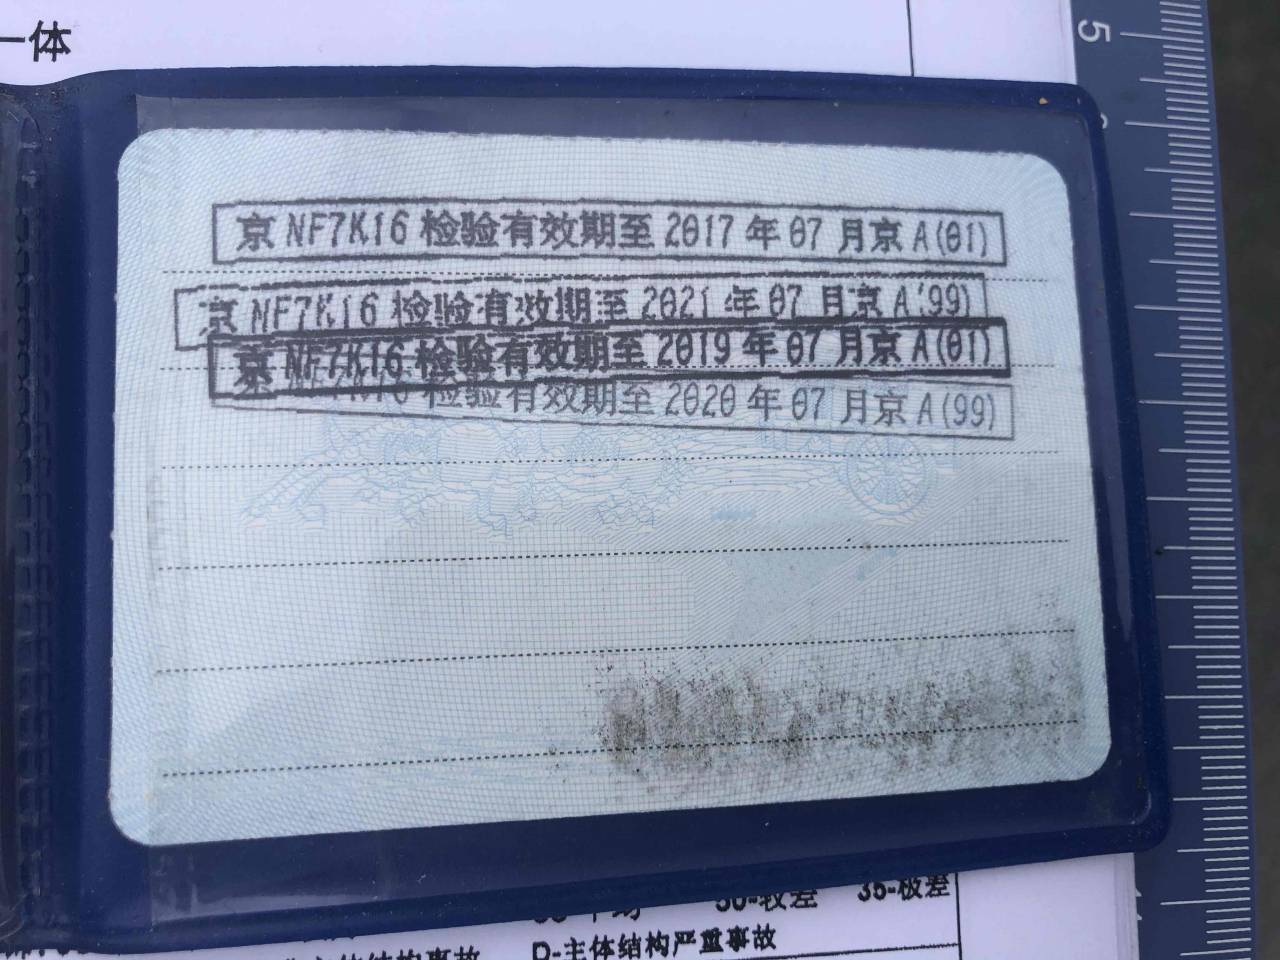 一体
5
京NF7K16检验有效期至2017年07月京A(01)
京NF7K16检验有效期至2021年07月京A(99)
京NF7K16检验有效期至2019年07月京A(01)
京NF7K16检验有效期至2020年07月京A(99)
50-较差 35-极差
D-主体结构严重事故